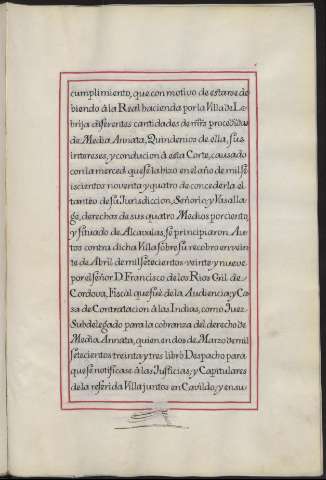 cumplimiento, que con motivo de estarse de-
biendo à la Real hacienda por la Villa de Le-
brija diferentes cantidades de mrs. procedidas
de Media Annata, Quindenios de ella, sus
intereses, y conducion à esta Corte, causado
con la merced que se la hizo en el año de mil se-
iscientos noventa y quatro de concederla el
tantèo de su Jurisdiccion, Señorio, y Vasalla-
ge, derechos de sus quatro Medios por ciento,
y situado de Alcavalas, se principiaron Au-
tos contra dicha Villa sobre su recobro en veinte
de Abril de mil setecientos veinte y nueve
por el señor D. Francisco de los Rios Gril de
Cordova, Fiscal que fuè de la Audiencia, y Ca-
sa de Contratacion à las Indias, como Juez
Subdelegado para la cobranza del derecho de
Media Annata, quien en dos de Marzo de mil
setecientos treinta y tres librò Despacho para
que se notificase à las Justicias, y Capitulares
de la referida Villa juntos en Cavildo, y en su